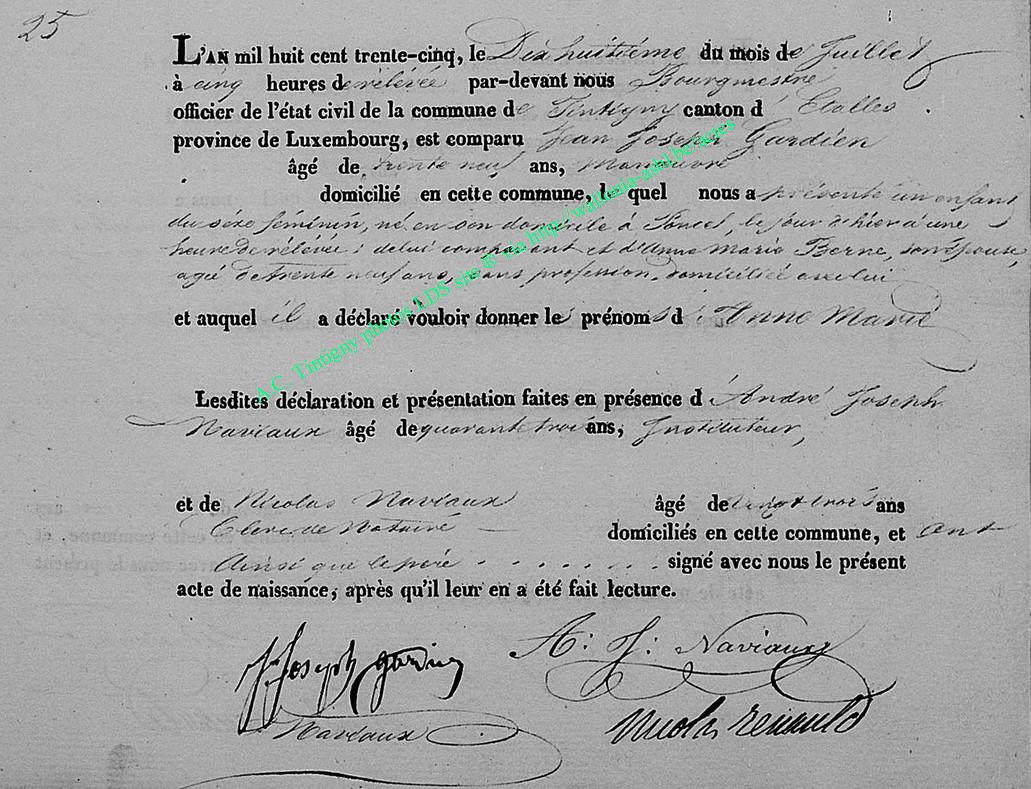 25
L'AN mil huit cent trente-cinq, le Dix huitième du mois de Juillet
à cinq heures de rélévée par-devant nous Bourgmestre
officier de l'état civil de la commune de Tintigny canton d' Etalles
province de Luxembourg, est comparu Jean Joseph Gardien
âgé de trente neuf ans,
domicilié en cette commune, le quel nous a présenté un enfant
du sexe féminin, né en son domicile à Poncel, le jour d'hier à une
heure de rélevée : de lui comparant et d'Anne Marie Berne, son épouse,
agé de trente neuf ans, sans profession, domicilié avec lui
et auquel il a déclaré vouloir donner les prénoms d' Anne Marie
Lesdites déclaration et présentation faites en présence d' André Joseph
Naviaux âgé de quarante trois ans, Instituteur,
et de Nicolas Naviaux âgé de vingt trois ans
Clerc de Notaire domiciliés en cette commune, et ont
Ainsi que le père signé avec nous le présent
acte de naissance, après qu'il leur en a été fait lecture.
J. Joseph gardien A: J: Naviaux
Naviaux Nicolas Renauld
A.C. Tintigny photos LDS site © via http://wallonia-asbl.be/actes